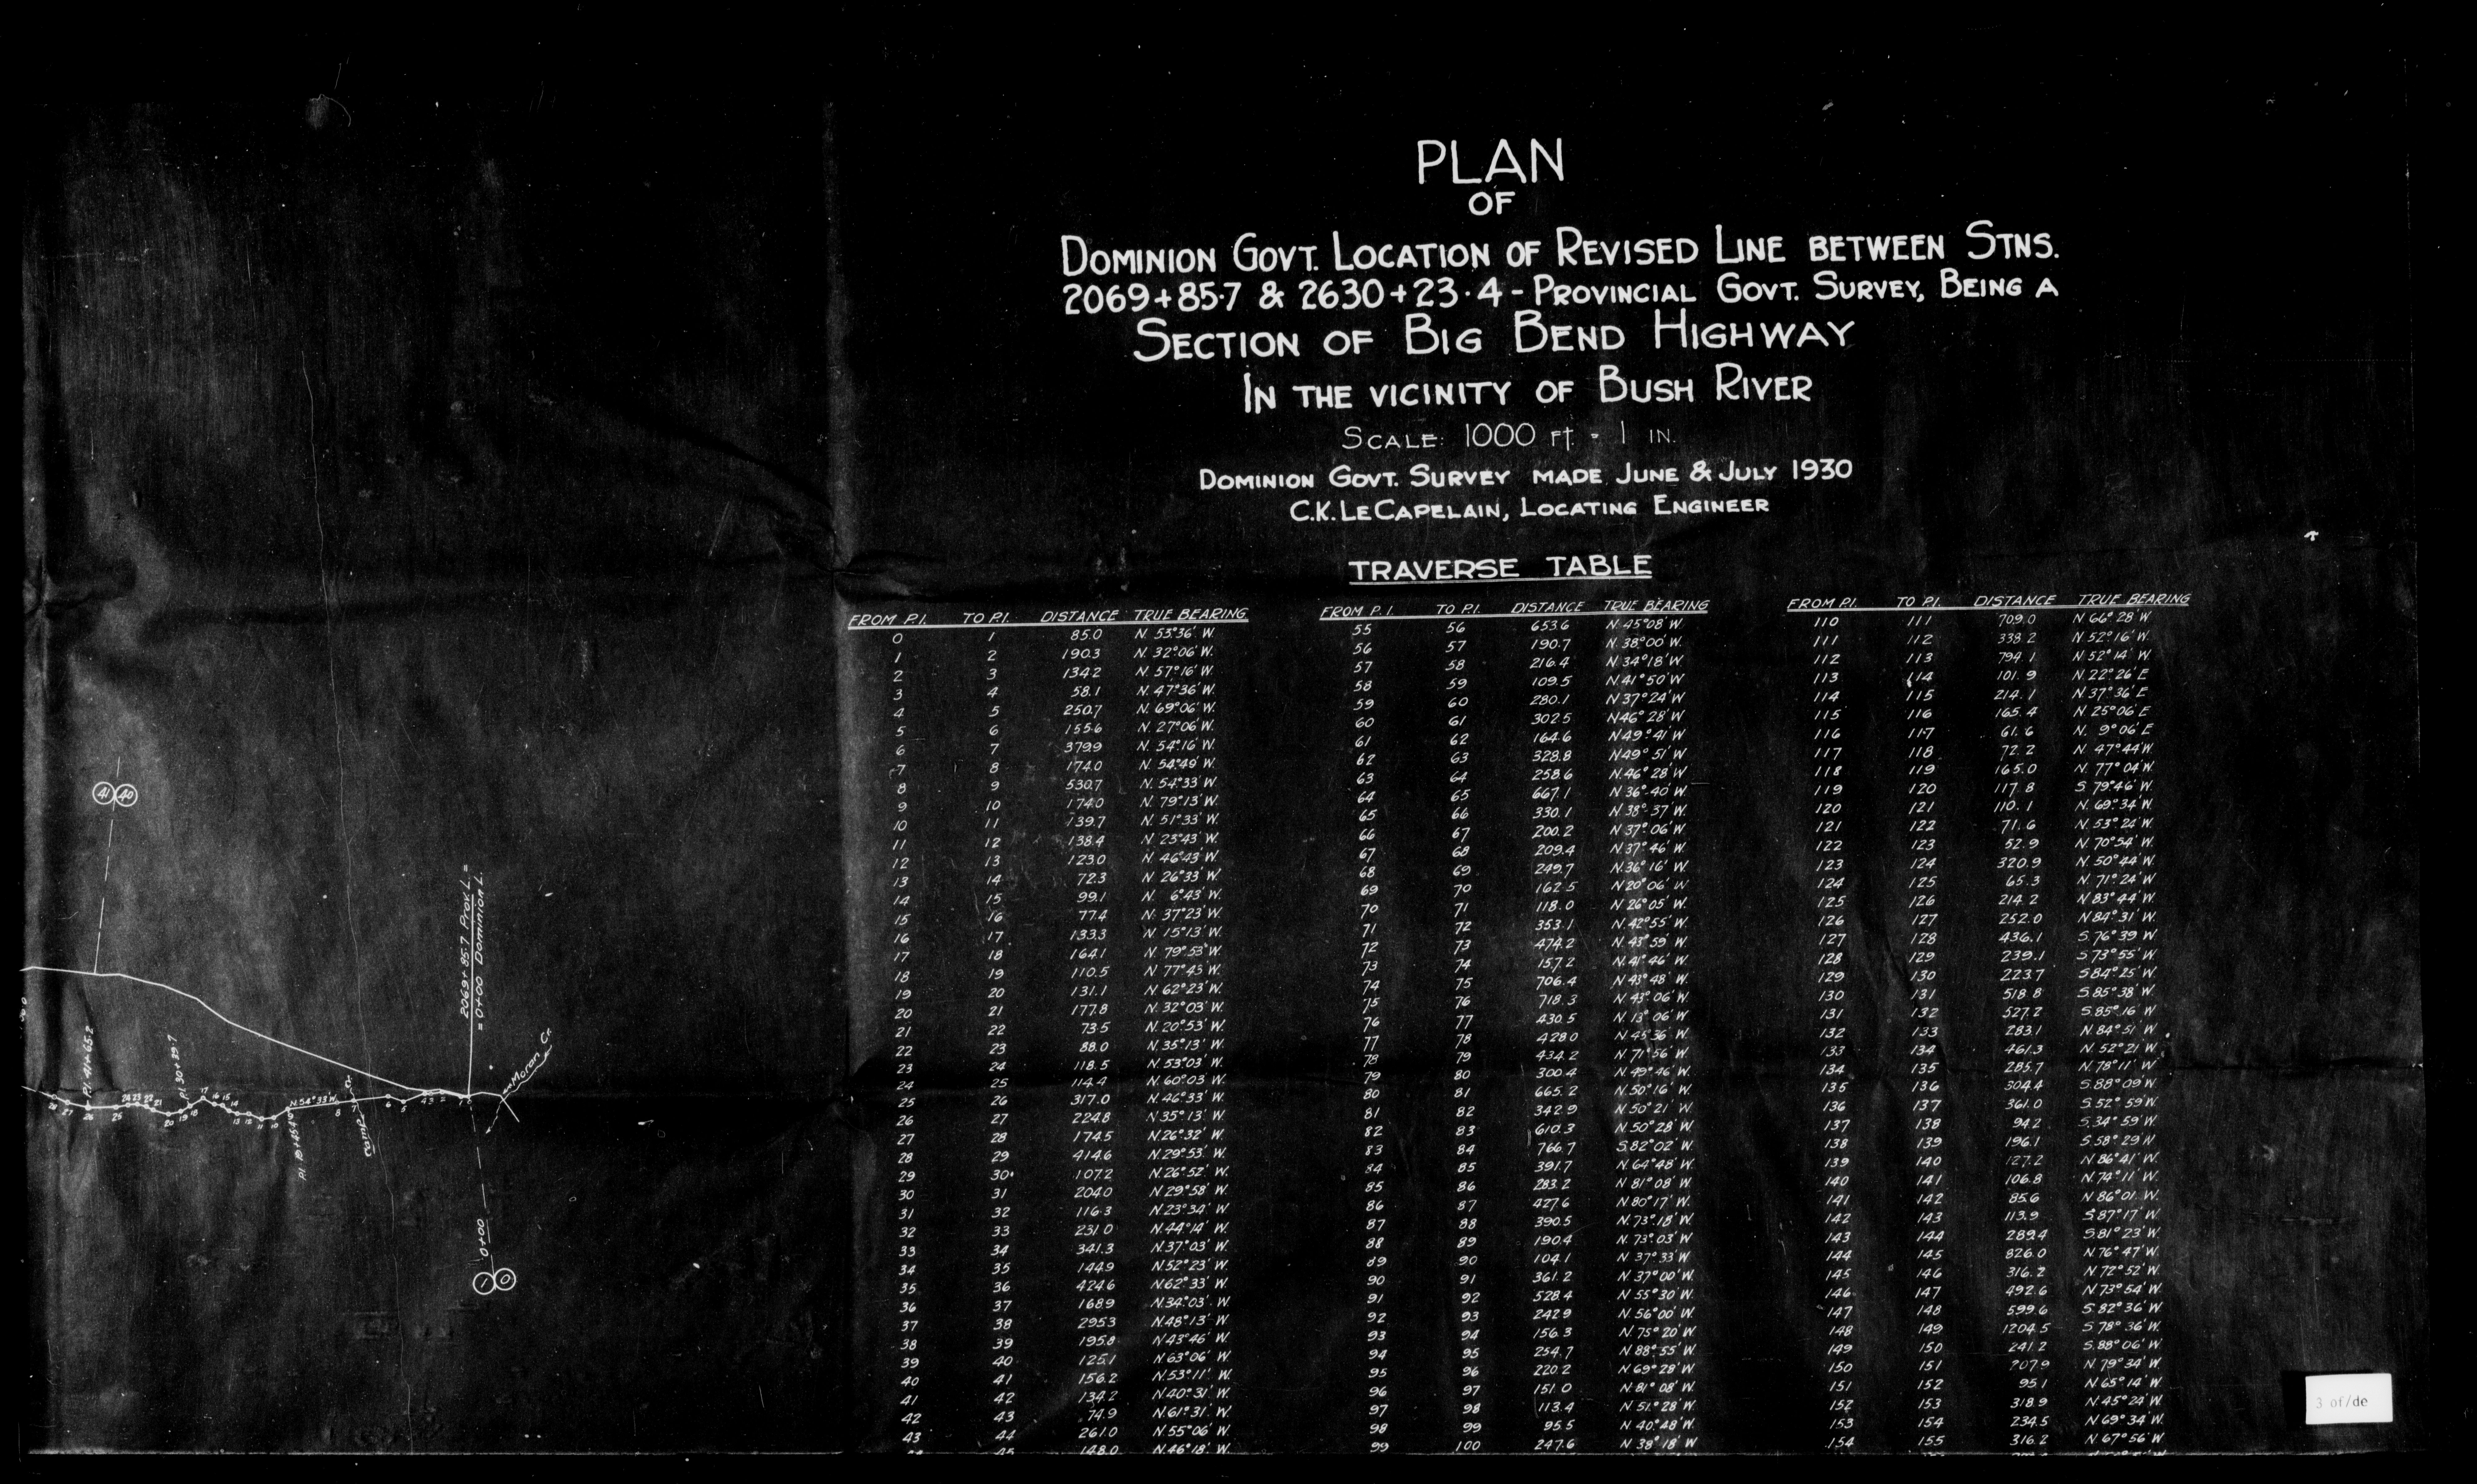 PLAN
OF
DOMINION GOVT. LOCATION OF REVISED LINE BETWEEN STNS.
2069+85.7 & 2630+23.4 - PROVINCIAL GOVT. SURVEY, BEING A
SECTION OF BIG BEND HIGHWAY
IN THE VICINITY OF BUSH RIVER
SCALE: 1000 FT. = 1 IN.
DOMINION GOVT. SURVEY MADE JUNE & JULY 1930
C.K. LE CAPELAIN, LOCATING ENGINEER
TRAVERSE TABLE
FROM P.I. TO P.I. DISTANCE TRUE BEARING
0 1 85.0 N. 53°36' W.
1 2 190.3 N. 32°06' W.
2 3 134.2 N. 57°16' W.
3 4 58.1 N. 47°36' W.
4 5 250.7 N. 69°06' W.
5 6 155.6 N. 27°06' W.
6 7 379.9 N. 54°16' W.
7 8 174.0 N. 54°49' W.
8 9 530.7 N. 54°33' W.
9 10 174.0 N. 79°13' W.
10 11 139.7 N. 51°33' W.
11 12 138.4 N. 23°43' W.
12 13 123.0 N. 46°43' W.
13 14 72.3 N. 26°33' W.
14 15 99.1 N. 6°43' W.
15 16 77.4 N. 37°23' W.
16 17 133.3 N. 15°13' W.
17 18 164.1 N. 79°53' W.
18 19 110.5 N. 77°43' W.
19 20 131.1 N. 62°23' W.
20 21 177.8 N. 32°03' W.
21 22 73.5 N. 20°53' W.
22 23 88.0 N. 35°13' W.
23 24 118.5 N. 53°03' W.
24 25 114.4 N. 60°03' W.
25 26 317.0 N. 46°33' W.
26 27 224.8 N. 35°13' W.
27 28 174.5 N. 26°32' W.
28 29 414.6 N. 29°53' W.
29 30 107.2 N. 26°52' W.
30 31 204.0 N. 29°58' W.
31 32 116.3 N. 23°34' W.
32 33 231.0 N. 44°14' W.
33 34 341.3 N. 37°03' W.
34 35 144.9 N. 52°23' W.
35 36 424.6 N. 62°33' W.
36 37 168.9 N. 34°03' W.
37 38 295.3 N. 48°13' W.
38 39 195.8 N. 43°46' W.
39 40 125.1 N. 63°06' W.
40 41 156.2 N. 53°11' W.
41 42 134.2 N. 40°31' W.
42 43 74.9 N. 61°31' W.
43 44 261.0 N. 55°06' W.
45 148.0 N. 46°18' W.
FROM P.I. TO P.I. DISTANCE TRUE BEARING
55 56 653.6 N. 45°08' W.
56 57 190.7 N. 38°00' W.
57 58 216.4 N. 34°18' W.
58 59 109.5 N. 41°50' W.
59 60 280.1 N. 37°24' W.
60 61 302.5 N. 46°28' W.
61 62 164.6 N. 49°41' W.
62 63 328.8 N. 49°51' W.
63 64 258.6 N. 46°28' W.
64 65 667.1 N. 36°40' W.
65 66 330.1 N. 38°37' W.
66 67 200.2 N. 37°06' W.
67 68 209.4 N. 37°46' W.
68 69 249.7 N. 36°16' W.
69 70 162.5 N. 20°06' W.
70 71 118.0 N. 26°05' W.
71 72 353.1 N. 42°55' W.
72 73 474.2 N. 43°59' W.
73 74 157.2 N. 41°46' W.
74 75 706.4 N. 43°48' W.
75 76 718.3 N. 43°06' W.
76 77 430.5 N. 13°06' W.
77 78 428.0 N. 45°36' W.
78 79 434.2 N. 71°56' W.
79 80 300.4 N. 49°46' W.
80 81 665.2 N. 50°16' W.
81 82 342.9 N. 50°21' W.
82 83 610.3 N. 50°28' W.
83 84 766.7 S. 82°02' W.
84 85 391.7 N. 64°48' W.
85 86 283.2 N. 81°08' W.
86 87 427.6 N. 80°17' W.
87 88 390.5 N. 73°18' W.
88 89 190.4 N. 73°03' W.
89 90 104.1 N. 37°33' W.
90 91 361.2 N. 37°00' W.
91 92 528.4 N. 55°30' W.
92 93 242.9 N. 56°00' W.
93 94 156.3 N. 75°20' W.
94 95 254.7 N. 88°55' W.
95 96 220.2 N. 69°28' W.
96 97 151.0 N. 81°08' W.
97 98 113.4 N. 51°28' W.
98 99 95.5 N. 40°48' W.
99 100 247.6 N. 38°18' W.
FROM P.I. TO P.I. DISTANCE TRUE BEARING
110 111 709.0 N. 66°28' W.
111 112 338.2 N. 52°16' W.
112 113 794.1 N. 52°14' W.
113 114 101.9 N. 22°26' E.
114 115 214.1 N. 37°36' E.
115 116 165.4 N. 25°06' E.
116 117 61.6 N. 9°06' E.
117 118 72.2 N. 47°44' W.
118 119 165.0 N. 77°04' W.
119 120 117.8 S. 79°46' W.
120 121 110.1 N. 69°34' W.
121 122 71.6 N. 53°24' W.
122 123 52.9 N. 70°54' W.
123 124 320.9 N. 50°44' W.
124 125 65.3 N. 71°24' W.
125 126 214.2 N. 83°44' W.
126 127 252.0 N. 84°31' W.
127 128 436.1 S. 76°39' W.
128 129 239.1 S. 73°55' W.
129 130 223.7 S. 84°25' W.
130 131 518.8 S. 85°38' W.
131 132 527.2 S. 85°16' W.
132 133 283.1 N. 84°51' W.
133 134 461.3 N. 52°21' W.
134 135 285.7 N. 78°11' W.
135 136 304.4 S. 88°09' W.
136 137 361.0 S. 52°59' W.
137 138 94.2 S. 34°59' W.
138 139 196.1 S. 58°29' W.
139 140 127.2 N. 86°41' W.
140 141 106.8 N. 74°11' W.
141 142 85.6 N. 86°01' W.
142 143 113.9 S. 87°17' W.
143 144 289.4 S. 81°23' W.
144 145 826.0 N. 76°47' W.
145 146 316.2 N. 72°52' W.
146 147 492.6 N. 73°54' W.
147 148 599.6 S. 82°36' W.
148 149 1204.5 S. 78°36' W.
149 150 241.2 S. 88°06' W.
150 151 207.9 N. 79°34' W.
151 152 95.1 N. 65°14' W.
152 153 318.9 N. 45°24' W.
153 154 234.5 N. 69°34' W.
154 155 316.2 N. 67°56' W.
41 40
2069+85.7 Prov. L. =
= 0+00 Dominion L.
Moran Cr.
P.I. 41+65.2
P.I. 30+39.7
N. 54°33' W.
P.I. 18+45.4
Camp Cr.
0+00
1 0
3 of/de